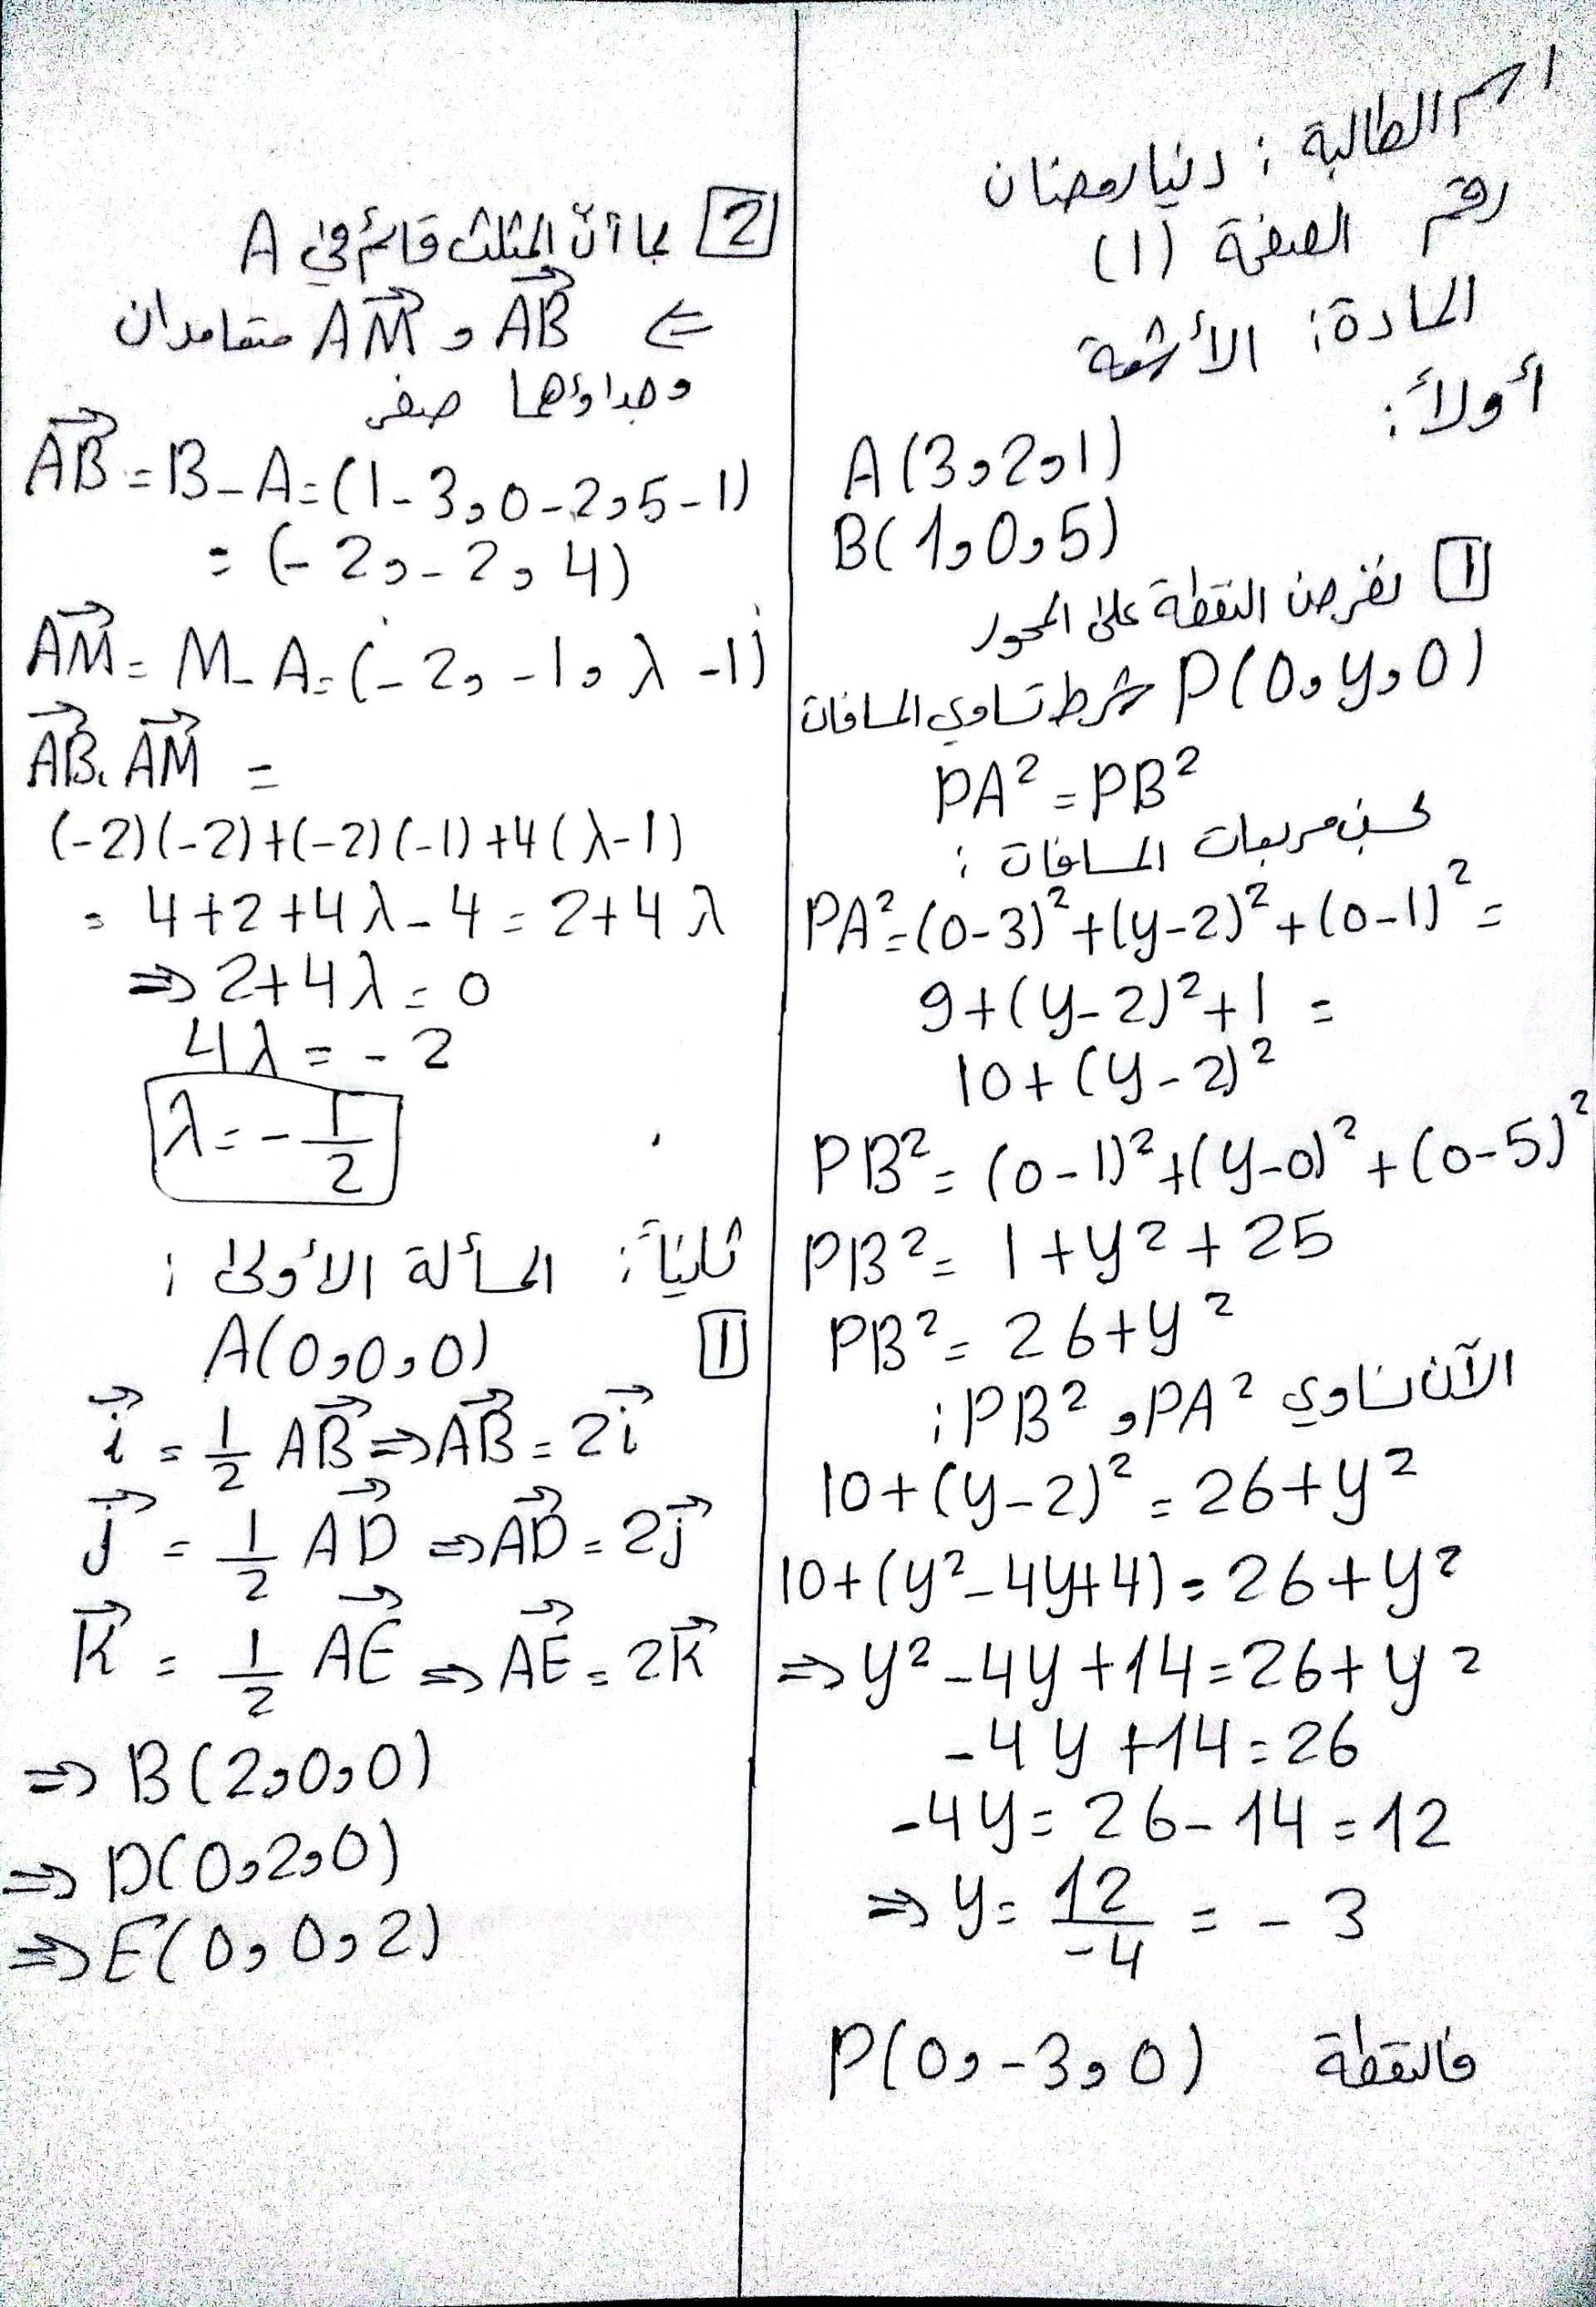 اسم الطالبة : دنيا رمضان
رقم الصفحة (1)
المادة: الأشعة
أولاً:
A(3,2,1)
B(1,0,5)
1 نفرض النقطة على المحور
P(0,y,0) شرط تساوي المسافات
PA² = PB²
نحسب مربعات المسافات :
PA² = (0-3)² + (y-2)² + (0-1)² =
9+(y-2)²+1 =
10+(y-2)²
PB² = (0-1)² + (y-0)² + (0-5)²
PB² = 1+y²+25
PB² = 26+y²
الآن نساوي PA² و PB² :
10+(y-2)² = 26+y²
10+(y²-4y+4) = 26+y²
⇒ y²-4y+14 = 26+y²
-4y+14 = 26
-4y = 26-14 = 12
⇒ y = 12/-4 = -3
فالنقطة P(0,-3,0)
2 بما أنّ المثلث قائم في A
⇐ AB⃗ و AM⃗ متعامدان
وجداؤهما صفر
AB⃗ = B-A = (1-3,0-2,5-1)
= (-2,-2,4)
AM⃗ = M-A = (-2,-1,λ-1)
AB⃗.AM⃗ =
(-2)(-2)+(-2)(-1)+4(λ-1)
= 4+2+4λ-4 = 2+4λ
⇒ 2+4λ = 0
4λ = -2
λ = -1/2
ثانياً: المسألة الأولى :
1 A(0,0,0)
i⃗ = 1/2 AB⃗ ⇒ AB⃗ = 2i⃗
j⃗ = 1/2 AD⃗ ⇒ AD⃗ = 2j⃗
K⃗ = 1/2 AE⃗ ⇒ AE⃗ = 2K⃗
⇒ B(2,0,0)
⇒ D(0,2,0)
⇒ E(0,0,2)